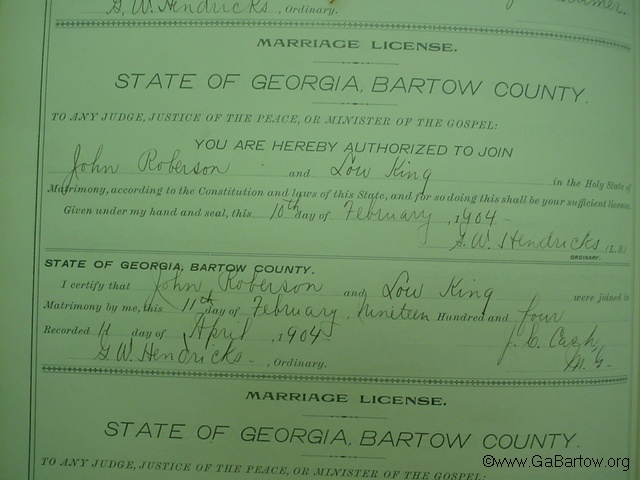 G. W. Hendricks, Ordinary.
MARRIAGE LICENSE.
STATE OF GEORGIA, BARTOW COUNTY.
TO ANY JUDGE, JUSTICE OF THE PEACE, OR MINISTER OF THE GOSPEL:
YOU ARE HEREBY AUTHORIZED TO JOIN
John Roberson and Low King in the Holy State of
Matrimony, according to the Constitution and laws of this State, and for so doing this shall be your sufficient license.
Given under my hand and seal, this 10th day of February, 1904-
G. W. Hendricks (L.S.)
ORDINARY.
STATE OF GEORGIA, BARTOW COUNTY.
I certify that John Roberson and Low King were joined in
Matrimony by me, this 11th day of February, Nineteen Hundred and four
Recorded 11 day of April, 1904- J. C. Cash
G W. Hendricks-, Ordinary. M. G-
MARRIAGE LICENSE.
STATE OF GEORGIA, BARTOW COUNTY.
TO ANY JUDGE, JUSTICE OF THE PEACE, OR MINISTER OF THE GOSPEL:
©www.GaBartow.org